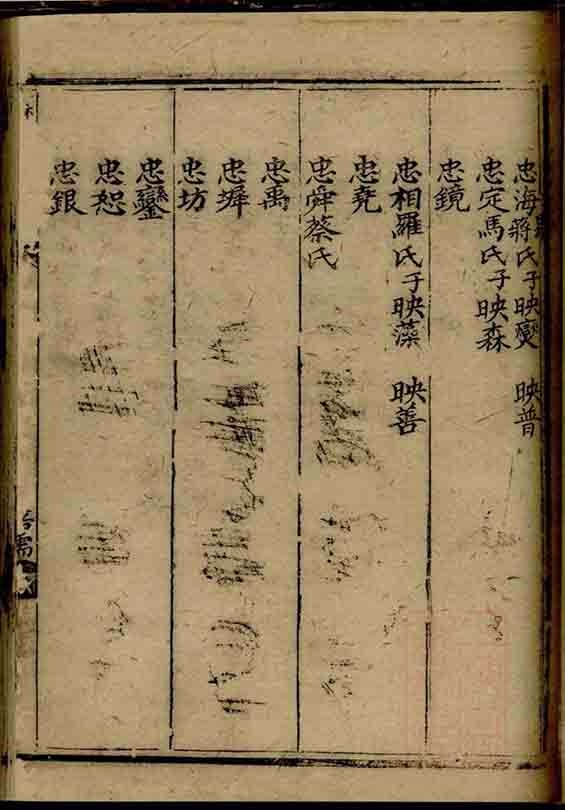 忠海蔣氏子映燮 映普
忠定馬氏子映森
忠鏡
忠相羅氏子映藻 映善
忠堯
忠舜蔡氏
忠禹
忠墀
忠坊
忠鑾
忠恕
忠銀